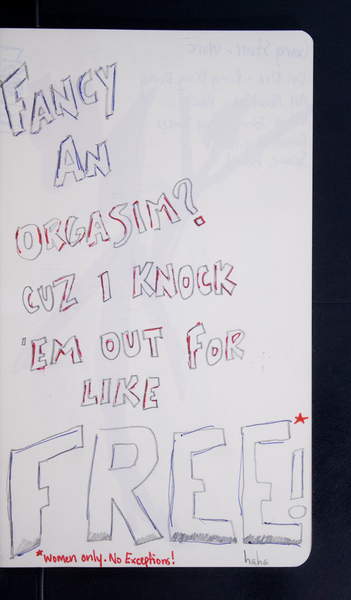 FANCY
AN
ORGASIM?
CUZ I KNOCK
'EM OUT FOR
LIKE
FREE!*
*women only. No Exceptions!
haha